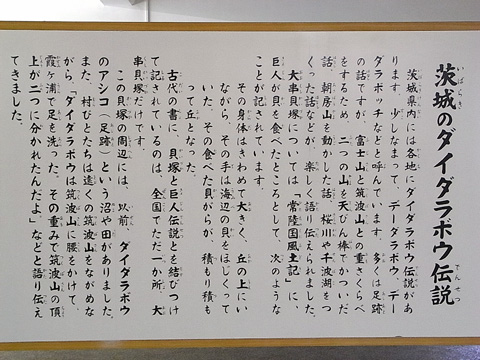 茨城のダイダラボウ伝説
いばらき
でんせつ
茨城県内には各地にダイダラボウ伝説があ
ります。少しなまって、データラボウ、デー
ダラボッチなどと呼んでいます。多くは足跡
の話ですが、富士山と筑波山との重さくらべ
をするため、二つの山を天びん棒でかついだ
話、朝房山を動かした話、桜川や千波湖をつ
くった話などが、楽しく語り伝えられました。
大串貝塚については「常陸国風土記」に、
巨人が貝を食べたところとして、次のような
ことが記されています。
その身体はきわめて大きく、丘の上にい
ながら、その手は海辺の貝をほじくって
いた。その食べた貝がらが、積もり積も
って丘となった。
古代の書に、貝塚と巨人伝説とを結びつけ
て記されているのは、全国でただ一か所、大
串貝塚だけです。
この貝塚の周辺には、以前、ダイダラボウ
のアシコ（足跡）という沼や田がありました。
また、村びとたちは遠くの筑波山をながめな
がら、「ダイダラボウは筑波山に腰をかけて、
霞ヶ浦で足を洗った。その重みで筑波山の頂
上が二つに分かれたんだよ」などと語り伝え
てきました。